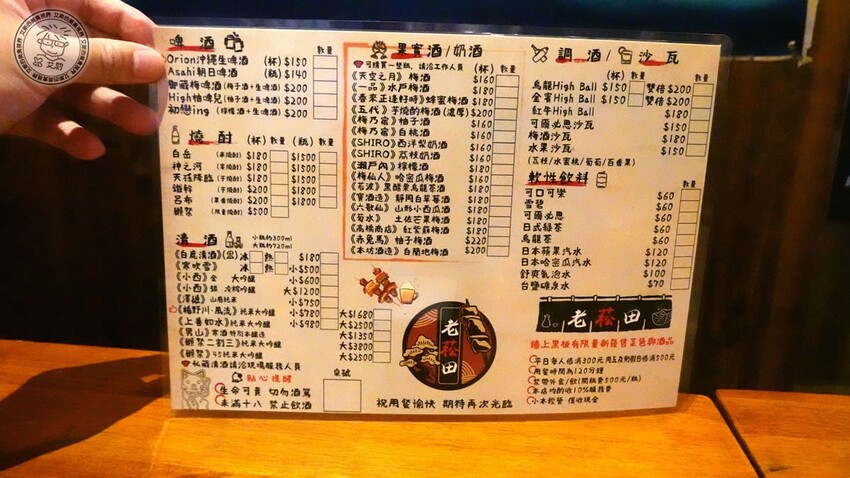 啤酒 數量
Orion沖繩生啤酒 (杯) $150
Asahi朝日啤酒 (瓶) $140
御藏梅啤酒(梅子酒+生啤酒) $200
High柚啤兒(柚子酒+生啤酒) $200
初戀ing (檸檬酒+生啤酒) $200
燒酎 (杯) 數量 (瓶) 數量
白岳 (米燒酎) $180 $1500
神之河 (麥燒酎) $180 $1500
天狂降臨 (芋燒酎) $180 $1500
鐵幹 (芋燒酎) $200 $1800
呂布 (栗香燒酎) $200 $1800
獺祭 (限量燒酎) $500
清酒 小瓶約300ml
大瓶約720ml
數量
《白鹿清酒》(壺) 冰 熱 $180
《寒吹雪》 冰 熱 小$500
《小西》金 大吟釀 小$600
《小西》銀 冷榨吟釀 大$1200
《澤雄》山廢純米 小$750
《梅野川·風流》純米大吟釀 小$780 大$1680
《上善如水》純米大吟釀 小$980 大$2500
《男山》寒酒 特別本釀造 大$1350
《獺祭二割三》純米大吟釀 大$3800
《獺祭》45 純米大吟釀 大$2500
私藏清酒請洽現場服務人員
貼心提醒
生命可貴 切勿酒駕
未滿十八 禁止飲酒
桌號
果實酒/奶酒
可精買一整瓶,請洽工作人員 (杯) 數量
《天空之月》梅酒 $160
《一品》水戶梅酒 $160
《春來正逢好時》蜂蜜梅酒 $180
《五代》芋燒酎梅酒(濃厚) $200
《梅乃宿》柚子酒 $160
《梅乃宿》白桃酒 $160
《SHIRO》西洋梨奶酒 $160
《SHIRO》荔枝奶酒 $160
《瀨戶內》檸檬酒 $180
《梅仙人》哈密瓜梅酒 $160
《若波》黑醋栗烏龍茶酒 $180
《寶酒造》靜岡白草莓酒 $180
《六歌仙》山形小西瓜酒 $180
《菊水》 土佐芒果梅酒 $180
《高橋商店》紅紫蘇梅酒 $180
《赤兔馬》柚子梅酒 $220
《本坊酒造》白蘭地梅酒 $200
老菘田
祝用餐愉快 期待再次光臨
調酒/沙瓦
(杯) 數量 數量
烏龍High Ball $150 雙倍$200
金賓High Ball $150 雙倍$200
紅牛High Ball $180
可爾必思沙瓦 $150
梅酒沙瓦 $180
水果沙瓦 $150
(荔枝/水蜜桃/葡萄/百香果)
軟性飲料 數量
可口可樂 $60
雪碧 $60
可爾必思 $60
日式綠茶 $60
烏龍茶 $60
日本蘋果汽水 $60
日本哈密瓜汽水 $60
舒爽氣泡水 $100
台鹽礦泉水 $70
老菘田
牆上黑板有限量新發售菜色與酒品
平日每人低消300元 周五及例假日低消500元
用餐時間為120分鐘
禁帶外食/飲(開瓶費500元/瓶)
本店均酌收10%服務費
小本經營 僅收現金